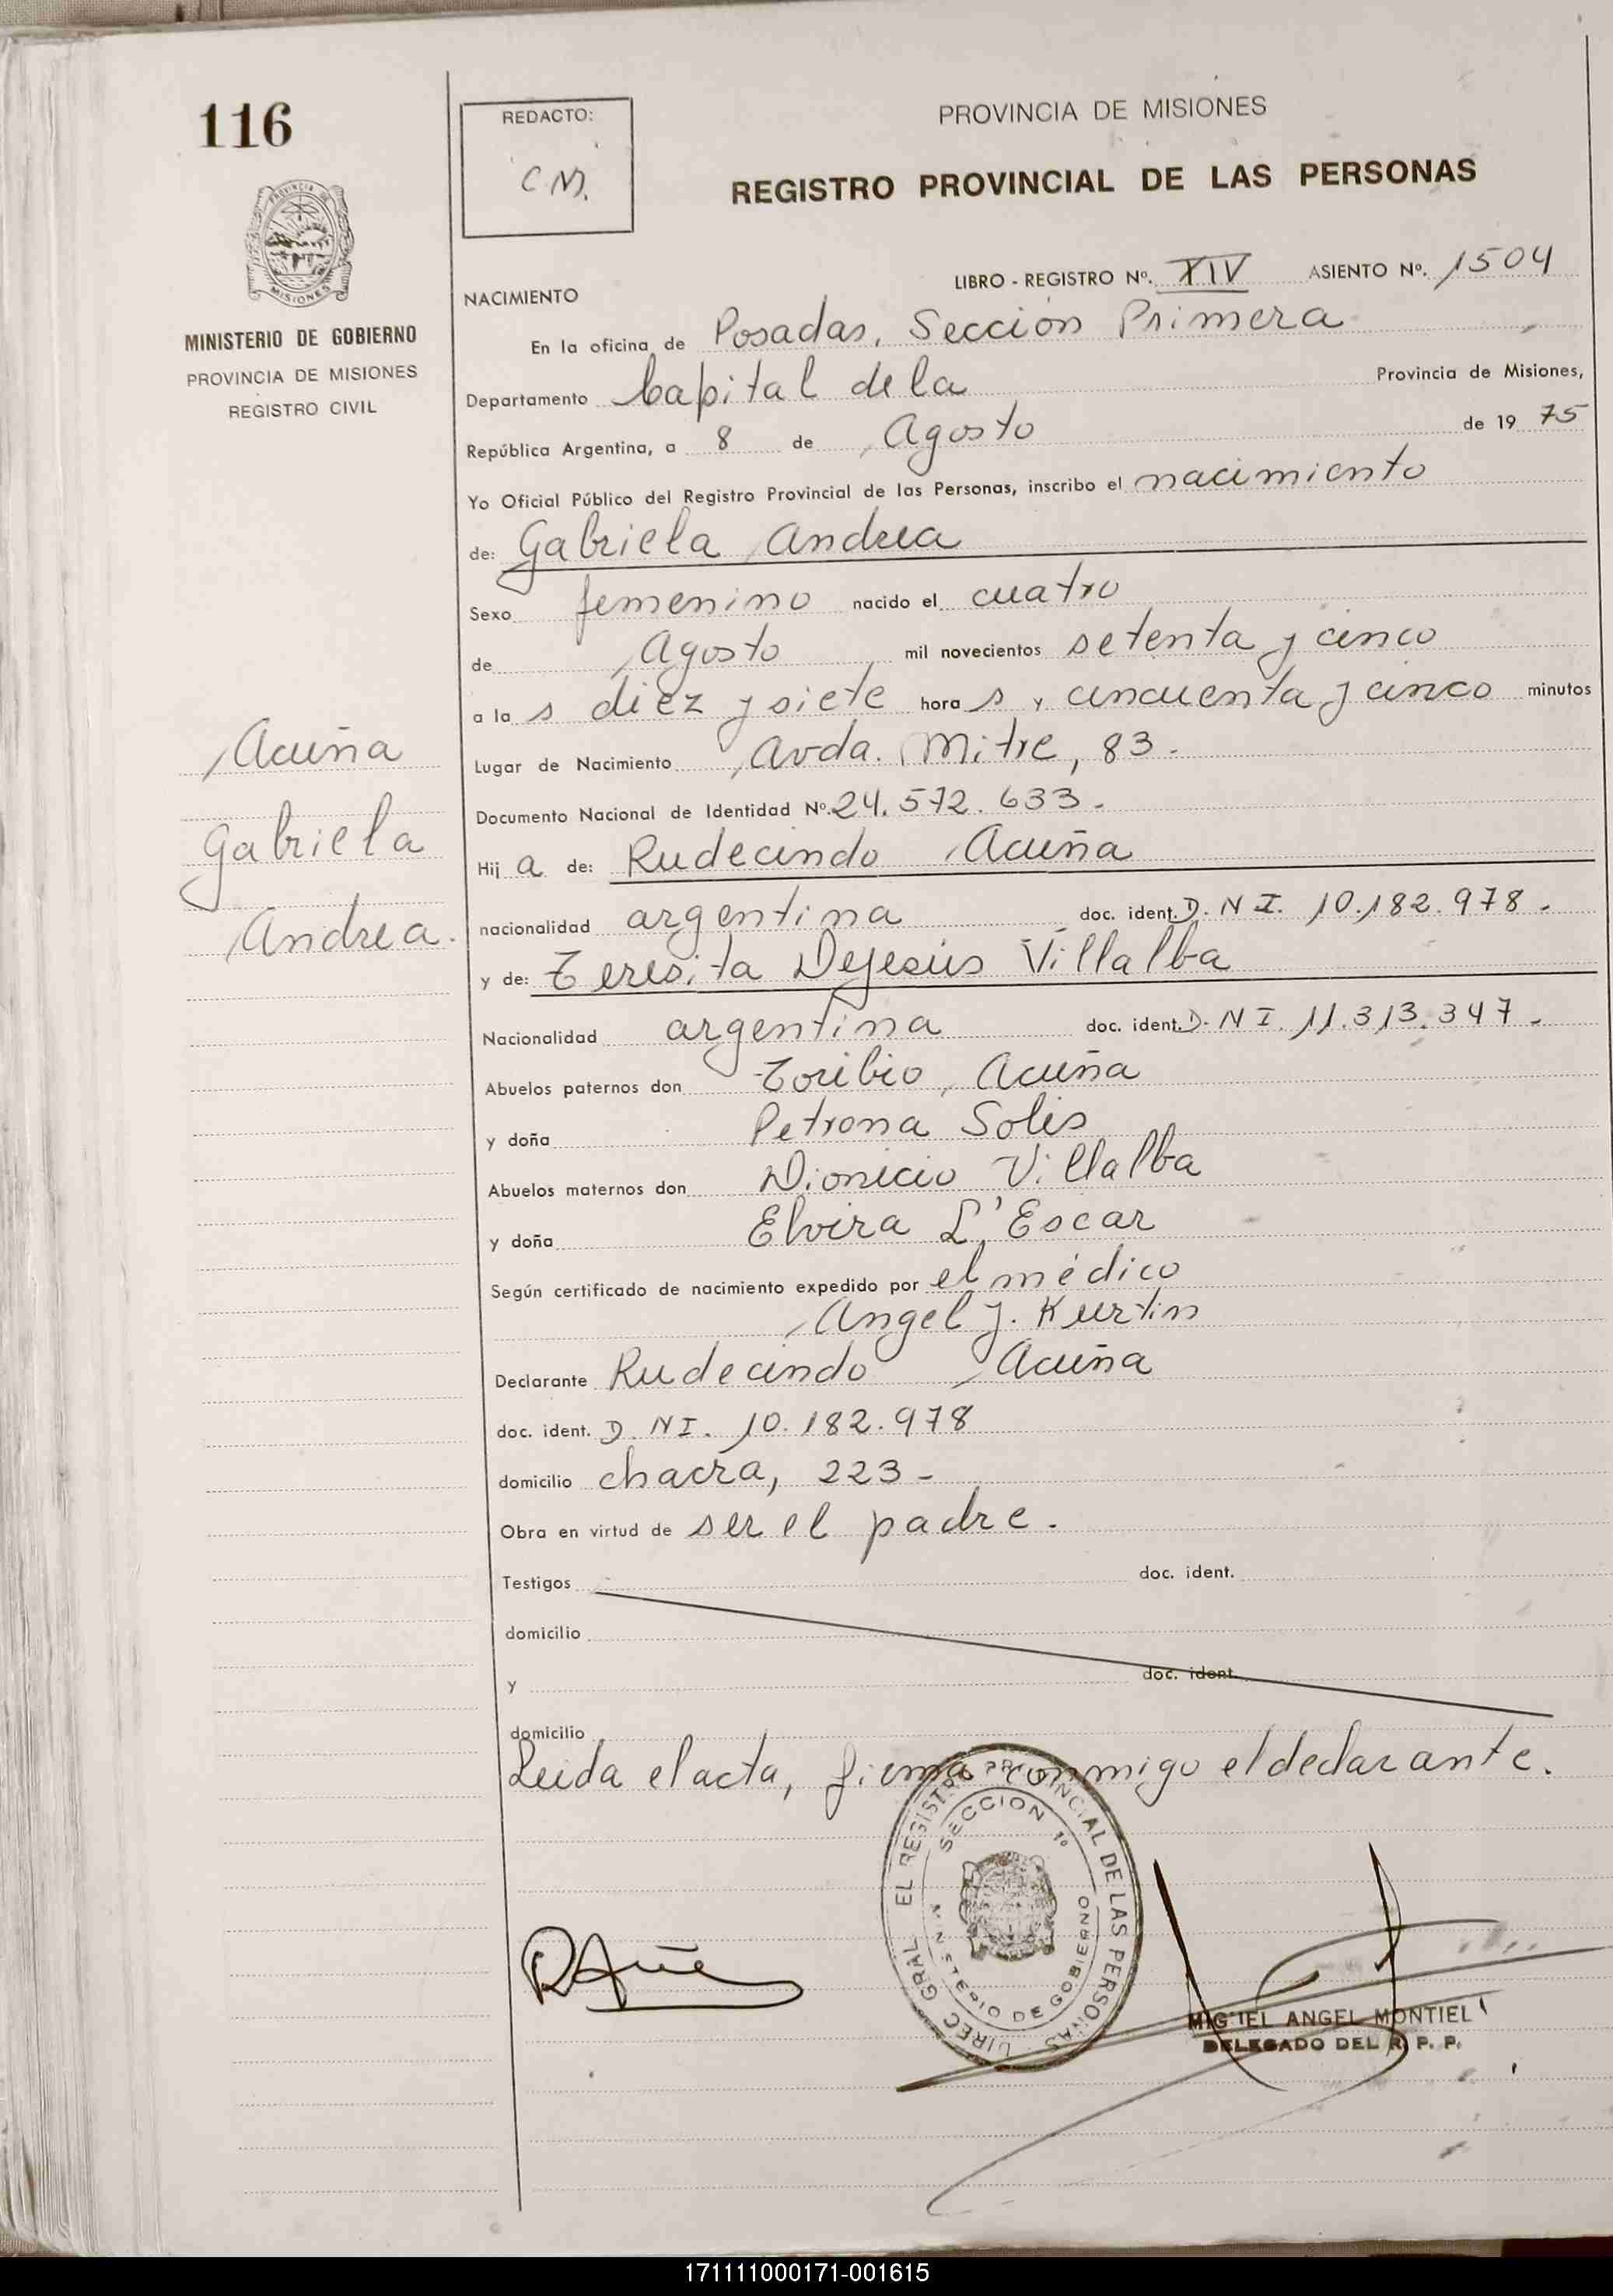 116
REDACTO:
C M.
PROVINCIA DE MISIONES
REGISTRO PROVINCIAL DE LAS PERSONAS
PROVINCIA DE
MISIONES
MINISTERIO DE GOBIERNO
PROVINCIA DE MISIONES
REGISTRO CIVIL
LIBRO - REGISTRO Nº. XIV ASIENTO Nº. 1504
NACIMIENTO
En la oficina de Posadas, Sección Primera
Departamento Capital de la Provincia de Misiones,
República Argentina, a 8 de Agosto de 19 75
Yo Oficial Público del Registro Provincial de las Personas, inscribo el nacimiento
de: Gabriela Andrea
Sexo femenino nacido el cuatro
de Agosto mil novecientos setenta y cinco
a la s diez y siete hora s y cincuenta y cinco minutos
Lugar de Nacimiento Avda. Mitre, 83.-
Documento Nacional de Identidad Nº. 24.572.633.-
Hij a de: Rudecindo Acuña
nacionalidad argentina doc. ident. D.N I. 10.182.978.-
y de: Teresita Dejesús Villalba
Nacionalidad argentina doc. ident. D. N I. 11.313.347.-
Abuelos paternos don Toribio Acuña
y doña Petrona Solis
Abuelos maternos don Dionicio Villalba
y doña Elvira L'Escar
Según certificado de nacimiento expedido por el médico
Angel J. Kurtin
Declarante Rudecindo Acuña
doc. ident. D. N I. 10.182.978
domicilio chacra, 223-
Obra en virtud de ser el padre.
Testigos doc. ident.
domicilio
y doc. ident.
domicilio
Leida el acta, firma conmigo el declarante.
Acuña
Gabriela
Andrea.
DIREC GRAL EL REGISTRO PROVINCIAL DE LAS PERSONAS
SECCION 1º
MINISTERIO DE GOBIERNO
R Acuña
MIGUEL ANGEL MONTIEL
DELEGADO DEL R. P. P.
171111000171-001615